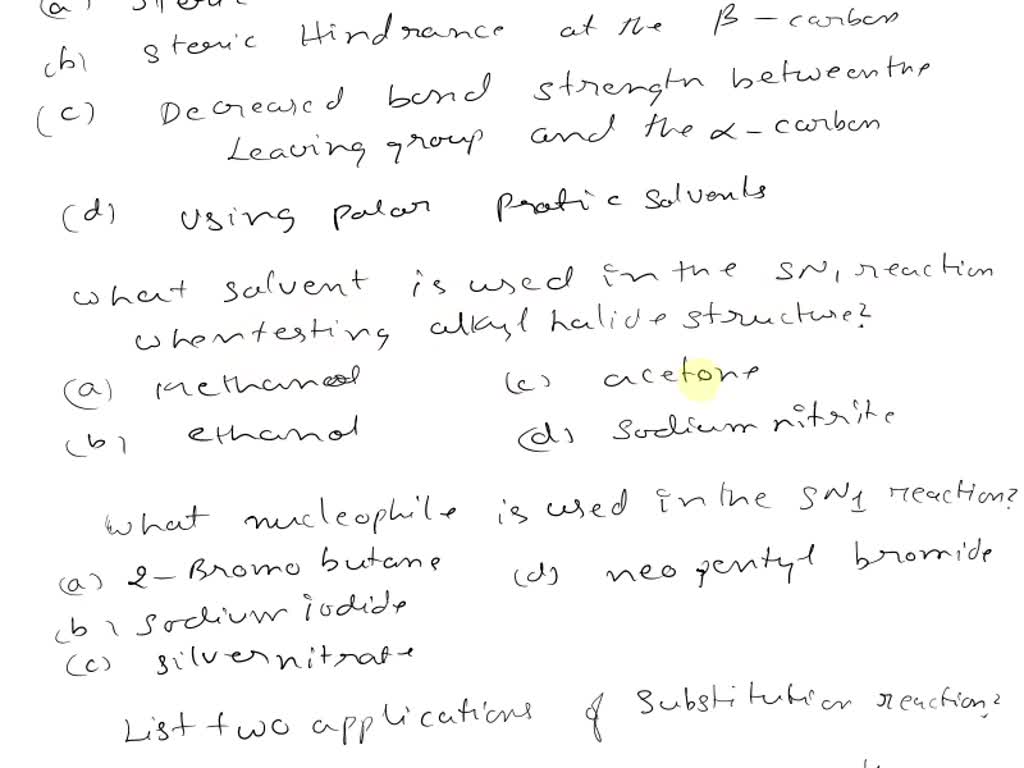 (a)
(b) Steric Hindrance at the β-carbon
(c) Decreased bond strength between the
Leaving group and the α-carbon
(d) Using polar protic solvents
What solvent is used in the SN1 reaction
when testing alkyl halide structure?
(a) Methanol (c) acetone
(b) ethanol (d) Sodium nitrite
What nucleophile is used in the SN1 reaction?
(a) 2-Bromo butane (d) neo pentyl bromide
(b) Sodium iodide
(c) silver nitrate
List two applications of Substitution reaction?